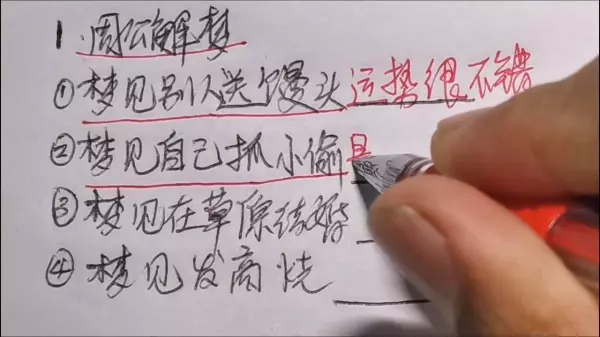 1.周公解梦
①梦见别人送个馒头运势很不错
②梦见自己抓小偷
③梦见在草原结婚
④梦见发高烧